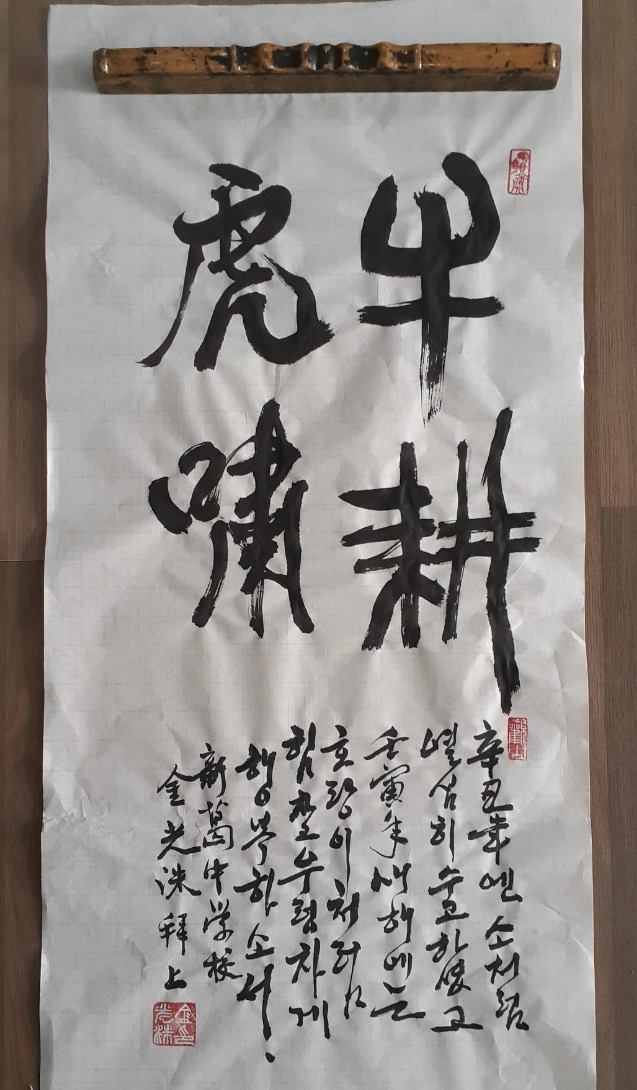 牛耕
虎嘯
辛丑年엔 소처럼
열심히 수고하셨고
壬寅年 새해에는
호랑이처럼
힘찬 우렁차게
행복하소서.
新葛中学校
金光洙 拜上